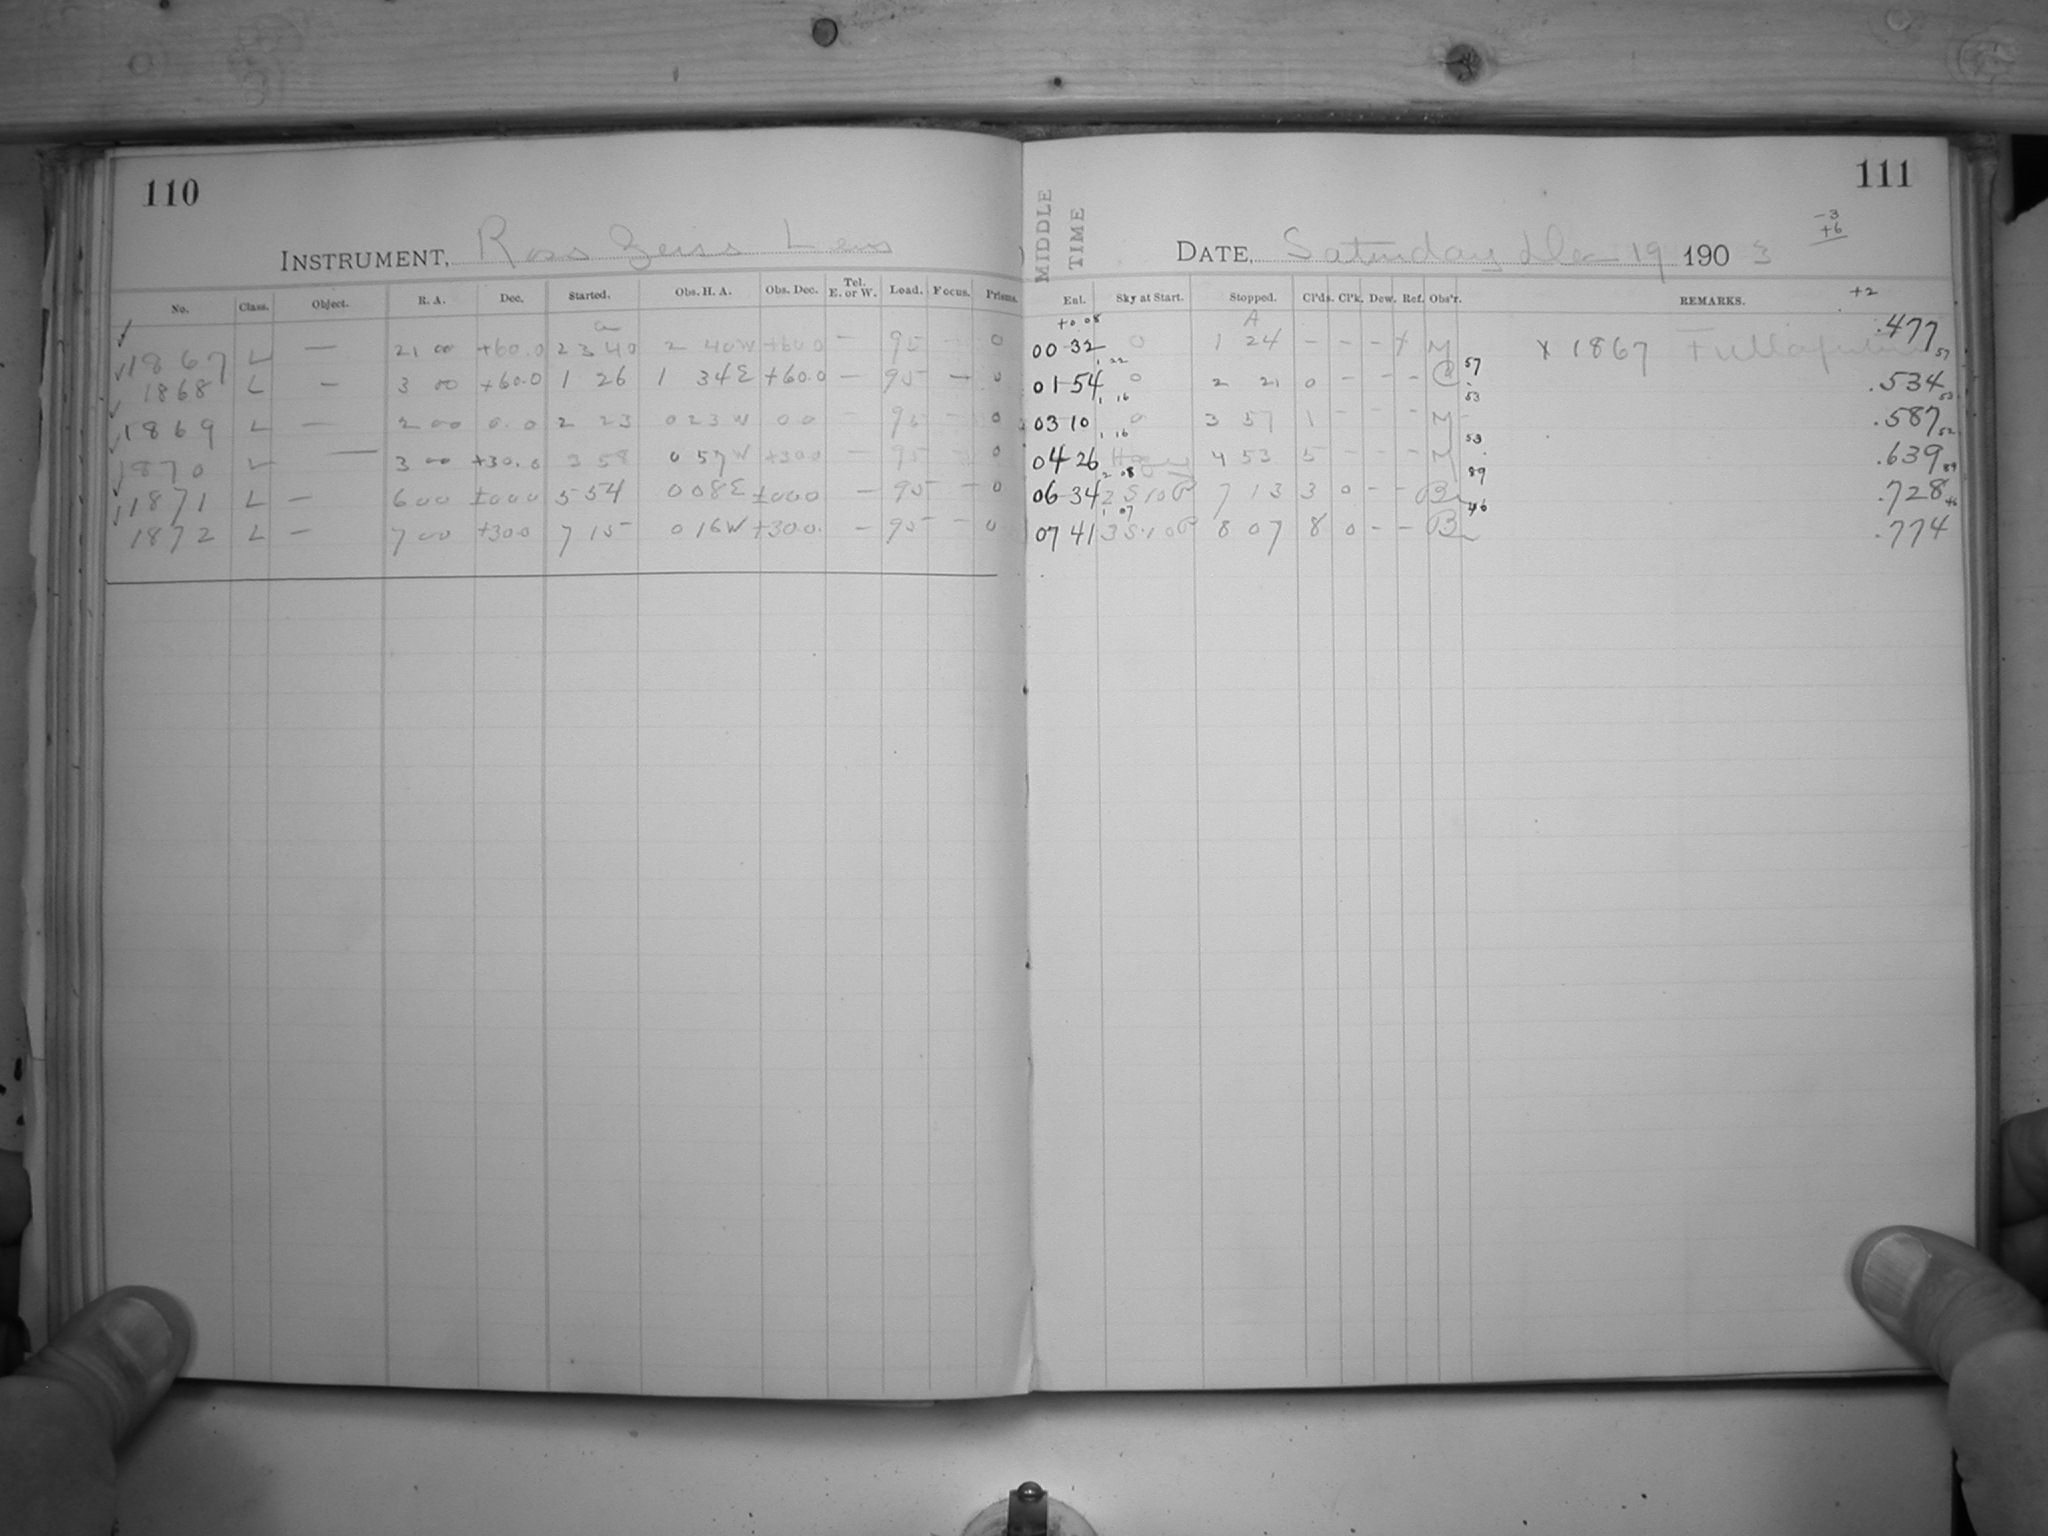 110
INSTRUMENT, Ross Zeiss Lens
No. Class. Object. R. A. Dec. Started. Obs. H. A. Obs. Dec. Tel. E. or W. Load. Focus. Prisms.
a
✓ 1867 L — 21 00 +60.0 23 40 2 40 W +60.0 — 95 — 0
✓ 1868 L — 3 00 +60.0 1 26 1 34 E +60.0 — 95 — 0
✓ 1869 L — 2 00 0.0 2 23 0 23 W 0 0 — 95 — 0
✓ 1870 L — 3 00 +30.0 3 58 0 57 W +30.0 — 95 — 0
✓ 1871 L — 6 00 ±000 5 54 0 08 E ±000 — 95 — 0
✓ 1872 L — 7 00 +300 7 15 0 16 W +300. — 95 — 0
111
MIDDLE TIME
-3
+6
DATE, Saturday Dec 19 1903
Enl. Sky at Start. Stopped. Cl'ds. Cl'k. Dew. Ref. Obs'r. REMARKS. +2
+0.08 A
00 32 0 1 24 - - - x M x 1867 .477 57
1 22 57
01 54 0 2 21 0 - - - .534 53
1 16 53
03 10 0 3 57 1 - - - M .587 52
1 16 53
04 26 4 53 5 - - - M .639 89
2 08 89
06 34 2 S 10 P 7 13 3 0 - - Br .728 46
1 07 46
07 41 3 S 10 P 8 07 8 0 - - Br .774